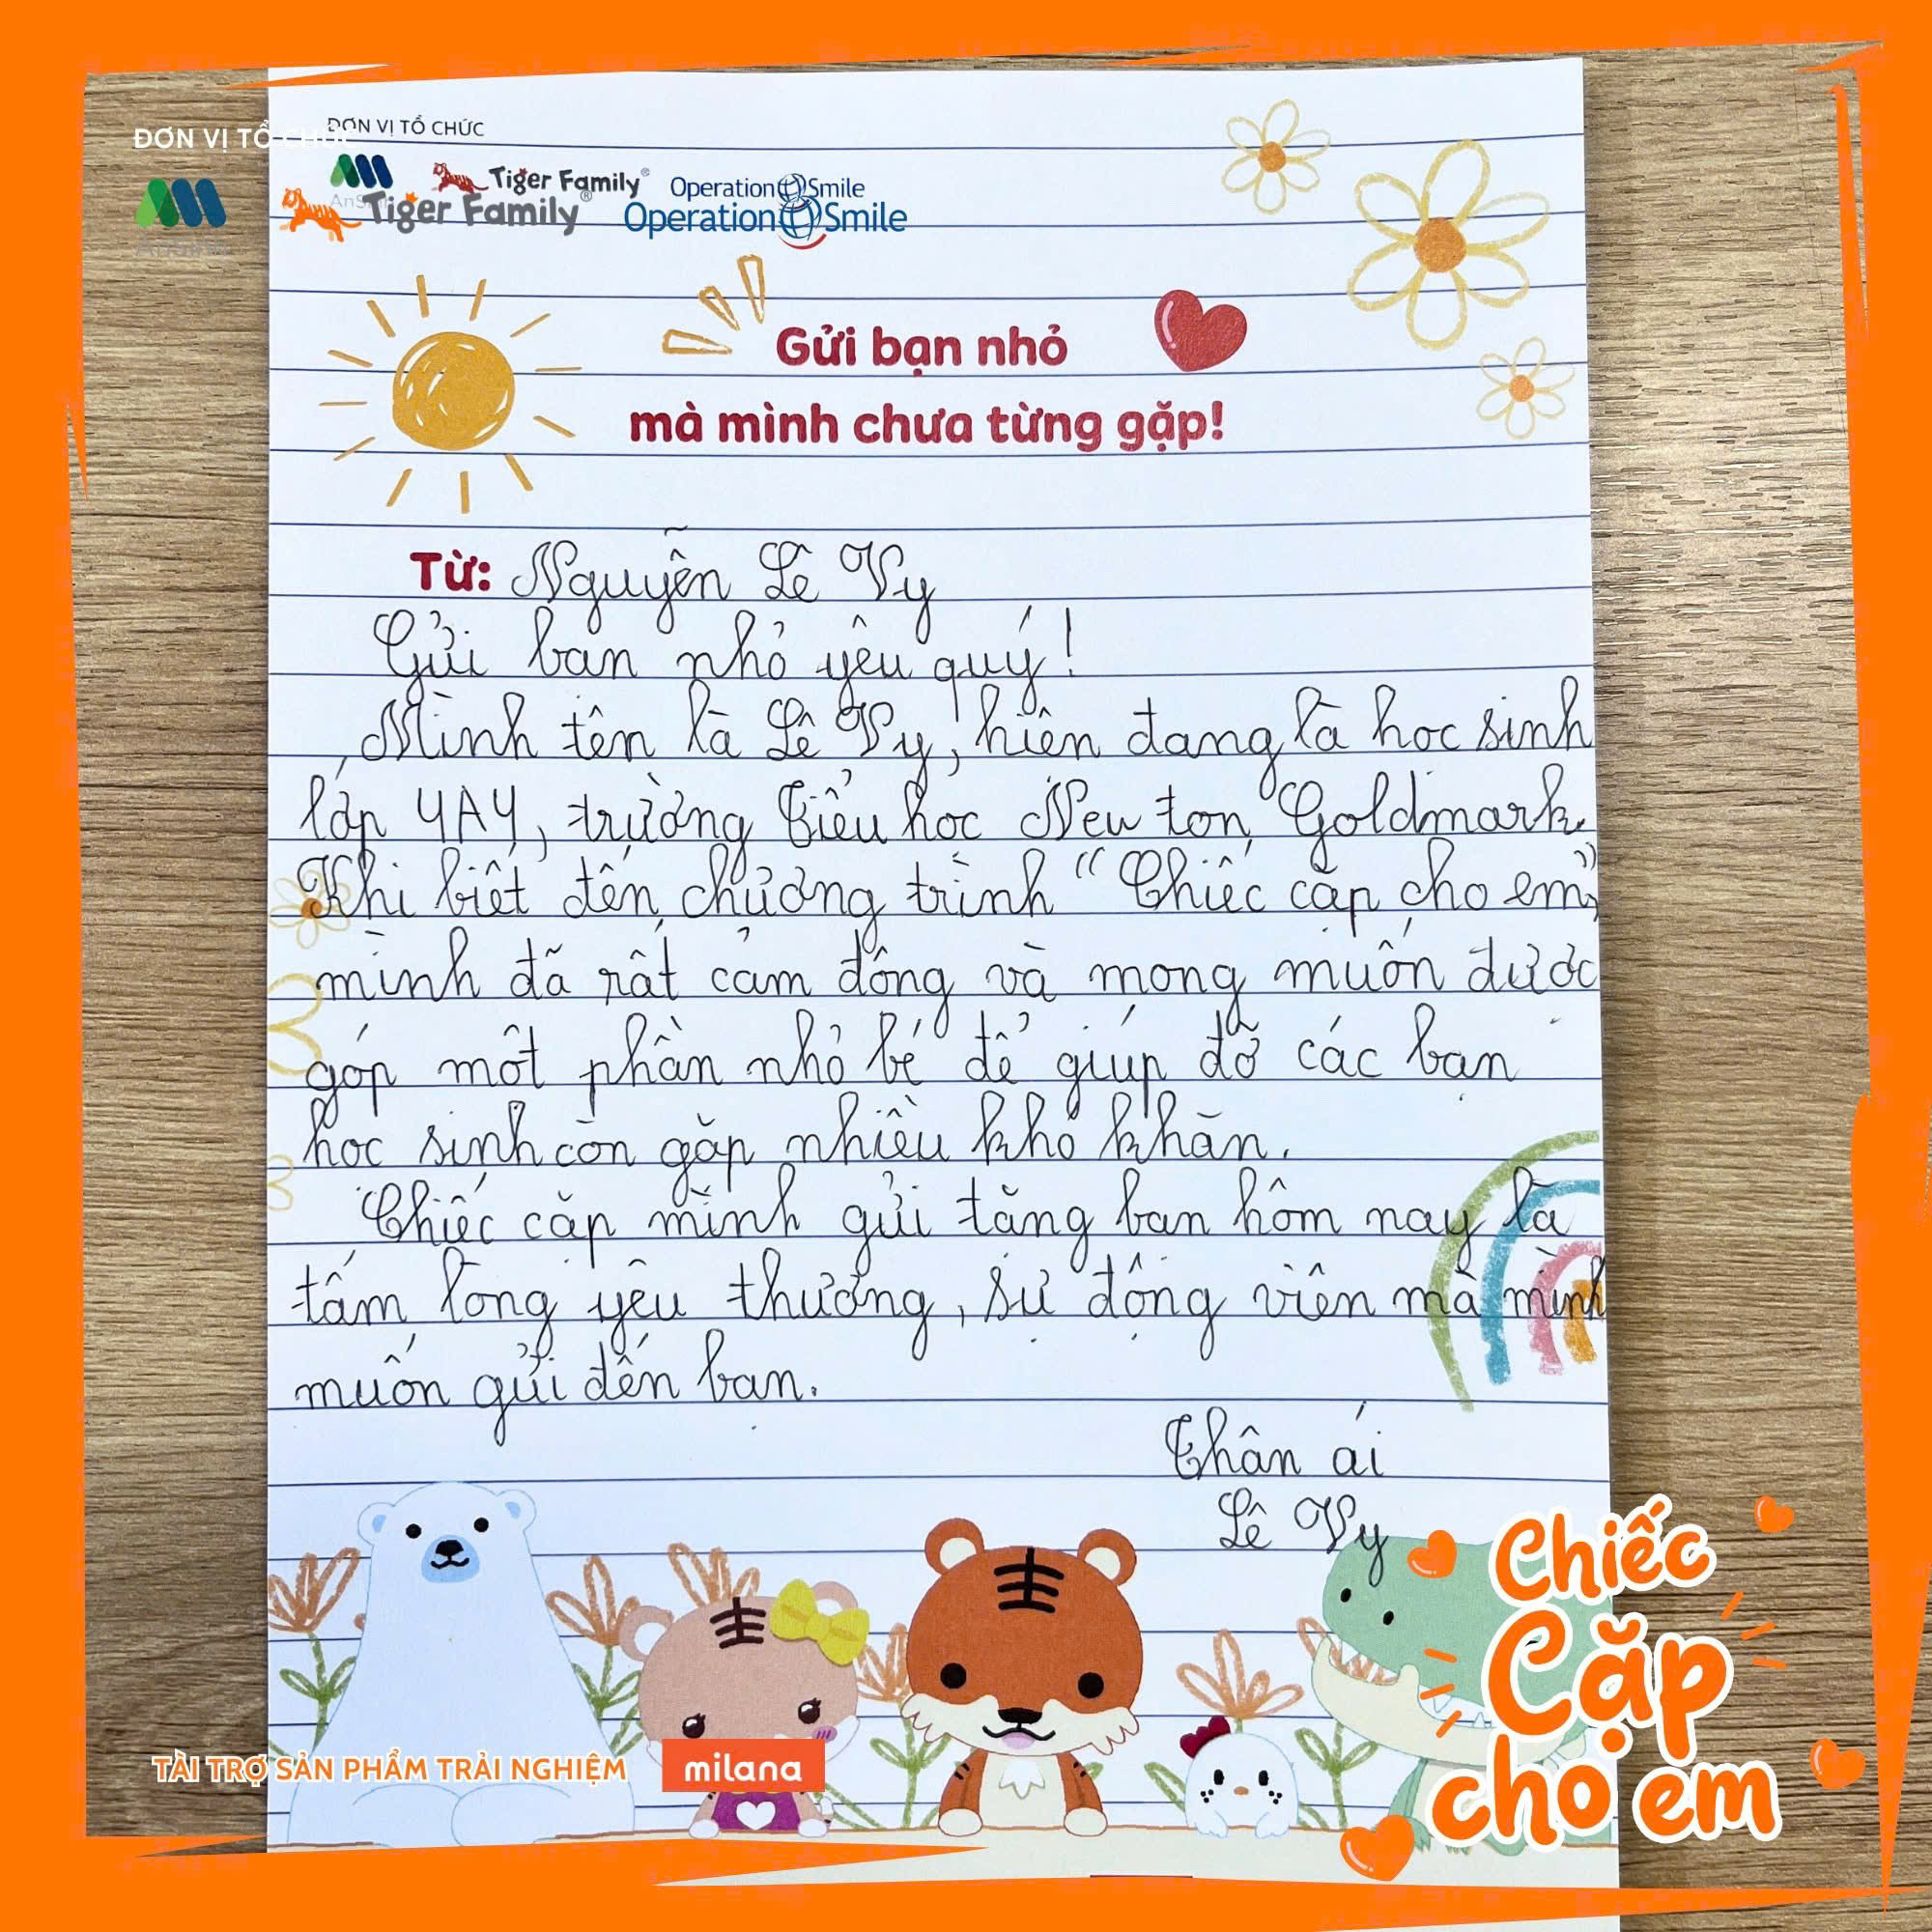 ĐƠN VỊ TỔ CHỨC
ĐƠN VỊ TỔ CHỨC
AnSinh Tiger Family® Operation Smile
AnSinh Tiger Family® Operation Smile
Gửi bạn nhỏ
mà mình chưa từng gặp!
Từ: Nguyễn Lê Vy
Gửi bạn nhỏ yêu quý!
Mình tên là Lê Vy, hiện đang là học sinh
lớp 4A4, trường Tiểu học Newton Goldmark.
Khi biết đến chương trình “Chiếc cặp cho em”,
mình đã rất cảm động và mong muốn được
góp một phần nhỏ bé để giúp đỡ các bạn
học sinh còn gặp nhiều khó khăn.
Chiếc cặp mình gửi tặng bạn hôm nay là
tấm lòng yêu thương, sự động viên mà mình
muốn gửi đến bạn.
Thân ái
Lê Vy
Chiếc
Cặp
cho em
TÀI TRỢ SẢN PHẨM TRẢI NGHIỆM milana